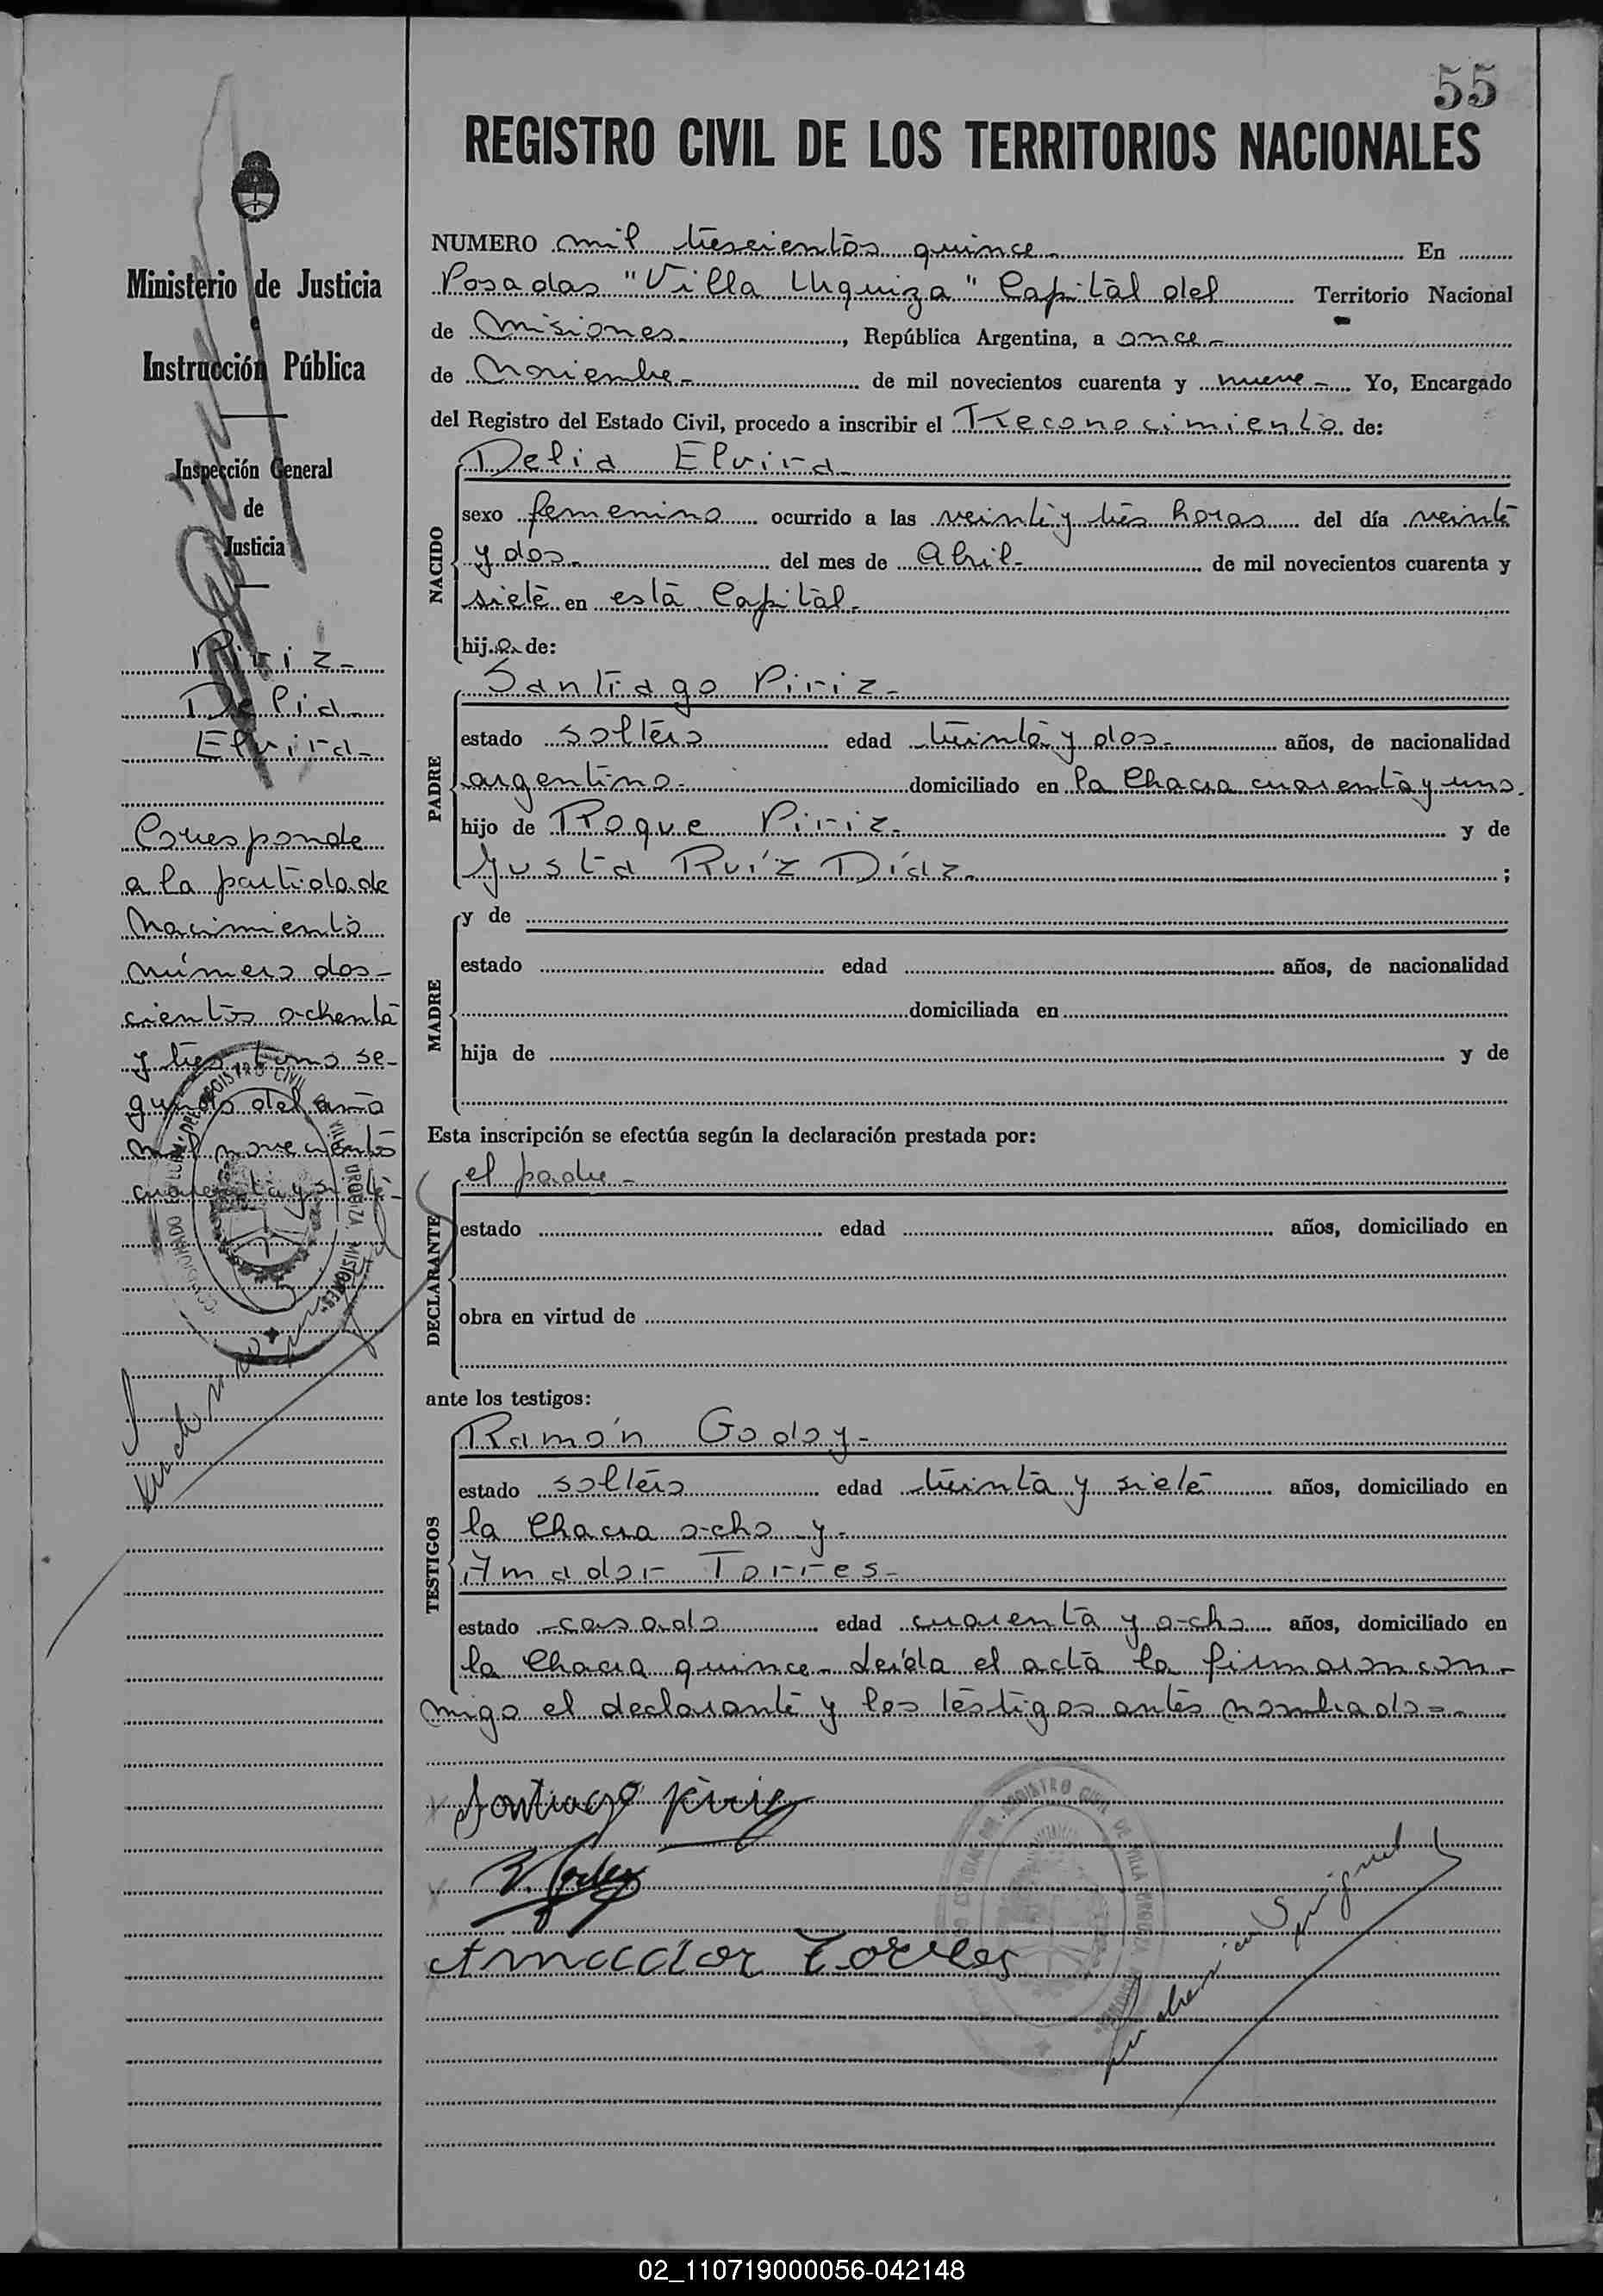 55
REGISTRO CIVIL DE LOS TERRITORIOS NACIONALES
Ministerio de Justicia
e
Instrucción Pública
Inspección General
de
Justicia
Piriz-
Delia-
Elvira-
Corresponde
a la partida de
Nacimiento
número dos-
cientos ochenta
y tres tomo se-
gundo del año
mil novecientos
cuarenta y siete-
NUMERO mil trescientos quince- En
Posadas "Villa Urquiza" Capital del Territorio Nacional
de Misiones-, República Argentina, a once-
de Noviembre- de mil novecientos cuarenta y nueve- Yo, Encargado
del Registro del Estado Civil, procedo a inscribir el Reconocimiento de:
NACIDO
Delia Elvira-
sexo femenino ocurrido a las veinte y tres horas del día veinte
y dos- del mes de Abril- de mil novecientos cuarenta y
siete en esta Capital-
hija de:
PADRE
Santiago Piriz-
estado soltero edad treinta y dos- años, de nacionalidad
argentino- domiciliado en la Chacra cuarenta y uno.
hijo de Roque Piriz- y de
Justa Ruíz Díaz- ;
MADRE
y de
estado edad años, de nacionalidad
domiciliada en
hija de y de
Esta inscripción se efectúa según la declaración prestada por:
DECLARANTE
el padre-
estado edad años, domiciliado en
obra en virtud de
ante los testigos:
TESTIGOS
Ramón Godoy-
estado soltero edad treinta y siete años, domiciliado en
la Chacra ocho y-
Amador Torres-
estado casado edad cuarenta y ocho años, domiciliado en
la Chacra quince- Leída el acta la firmaron con-
migo el declarante y los testigos antes nombrados-
Santiago Piriz
Amador Torres
REGISTRO CIVIL DE VILLA URQUIZA MISIONES
02_110719000056-042148